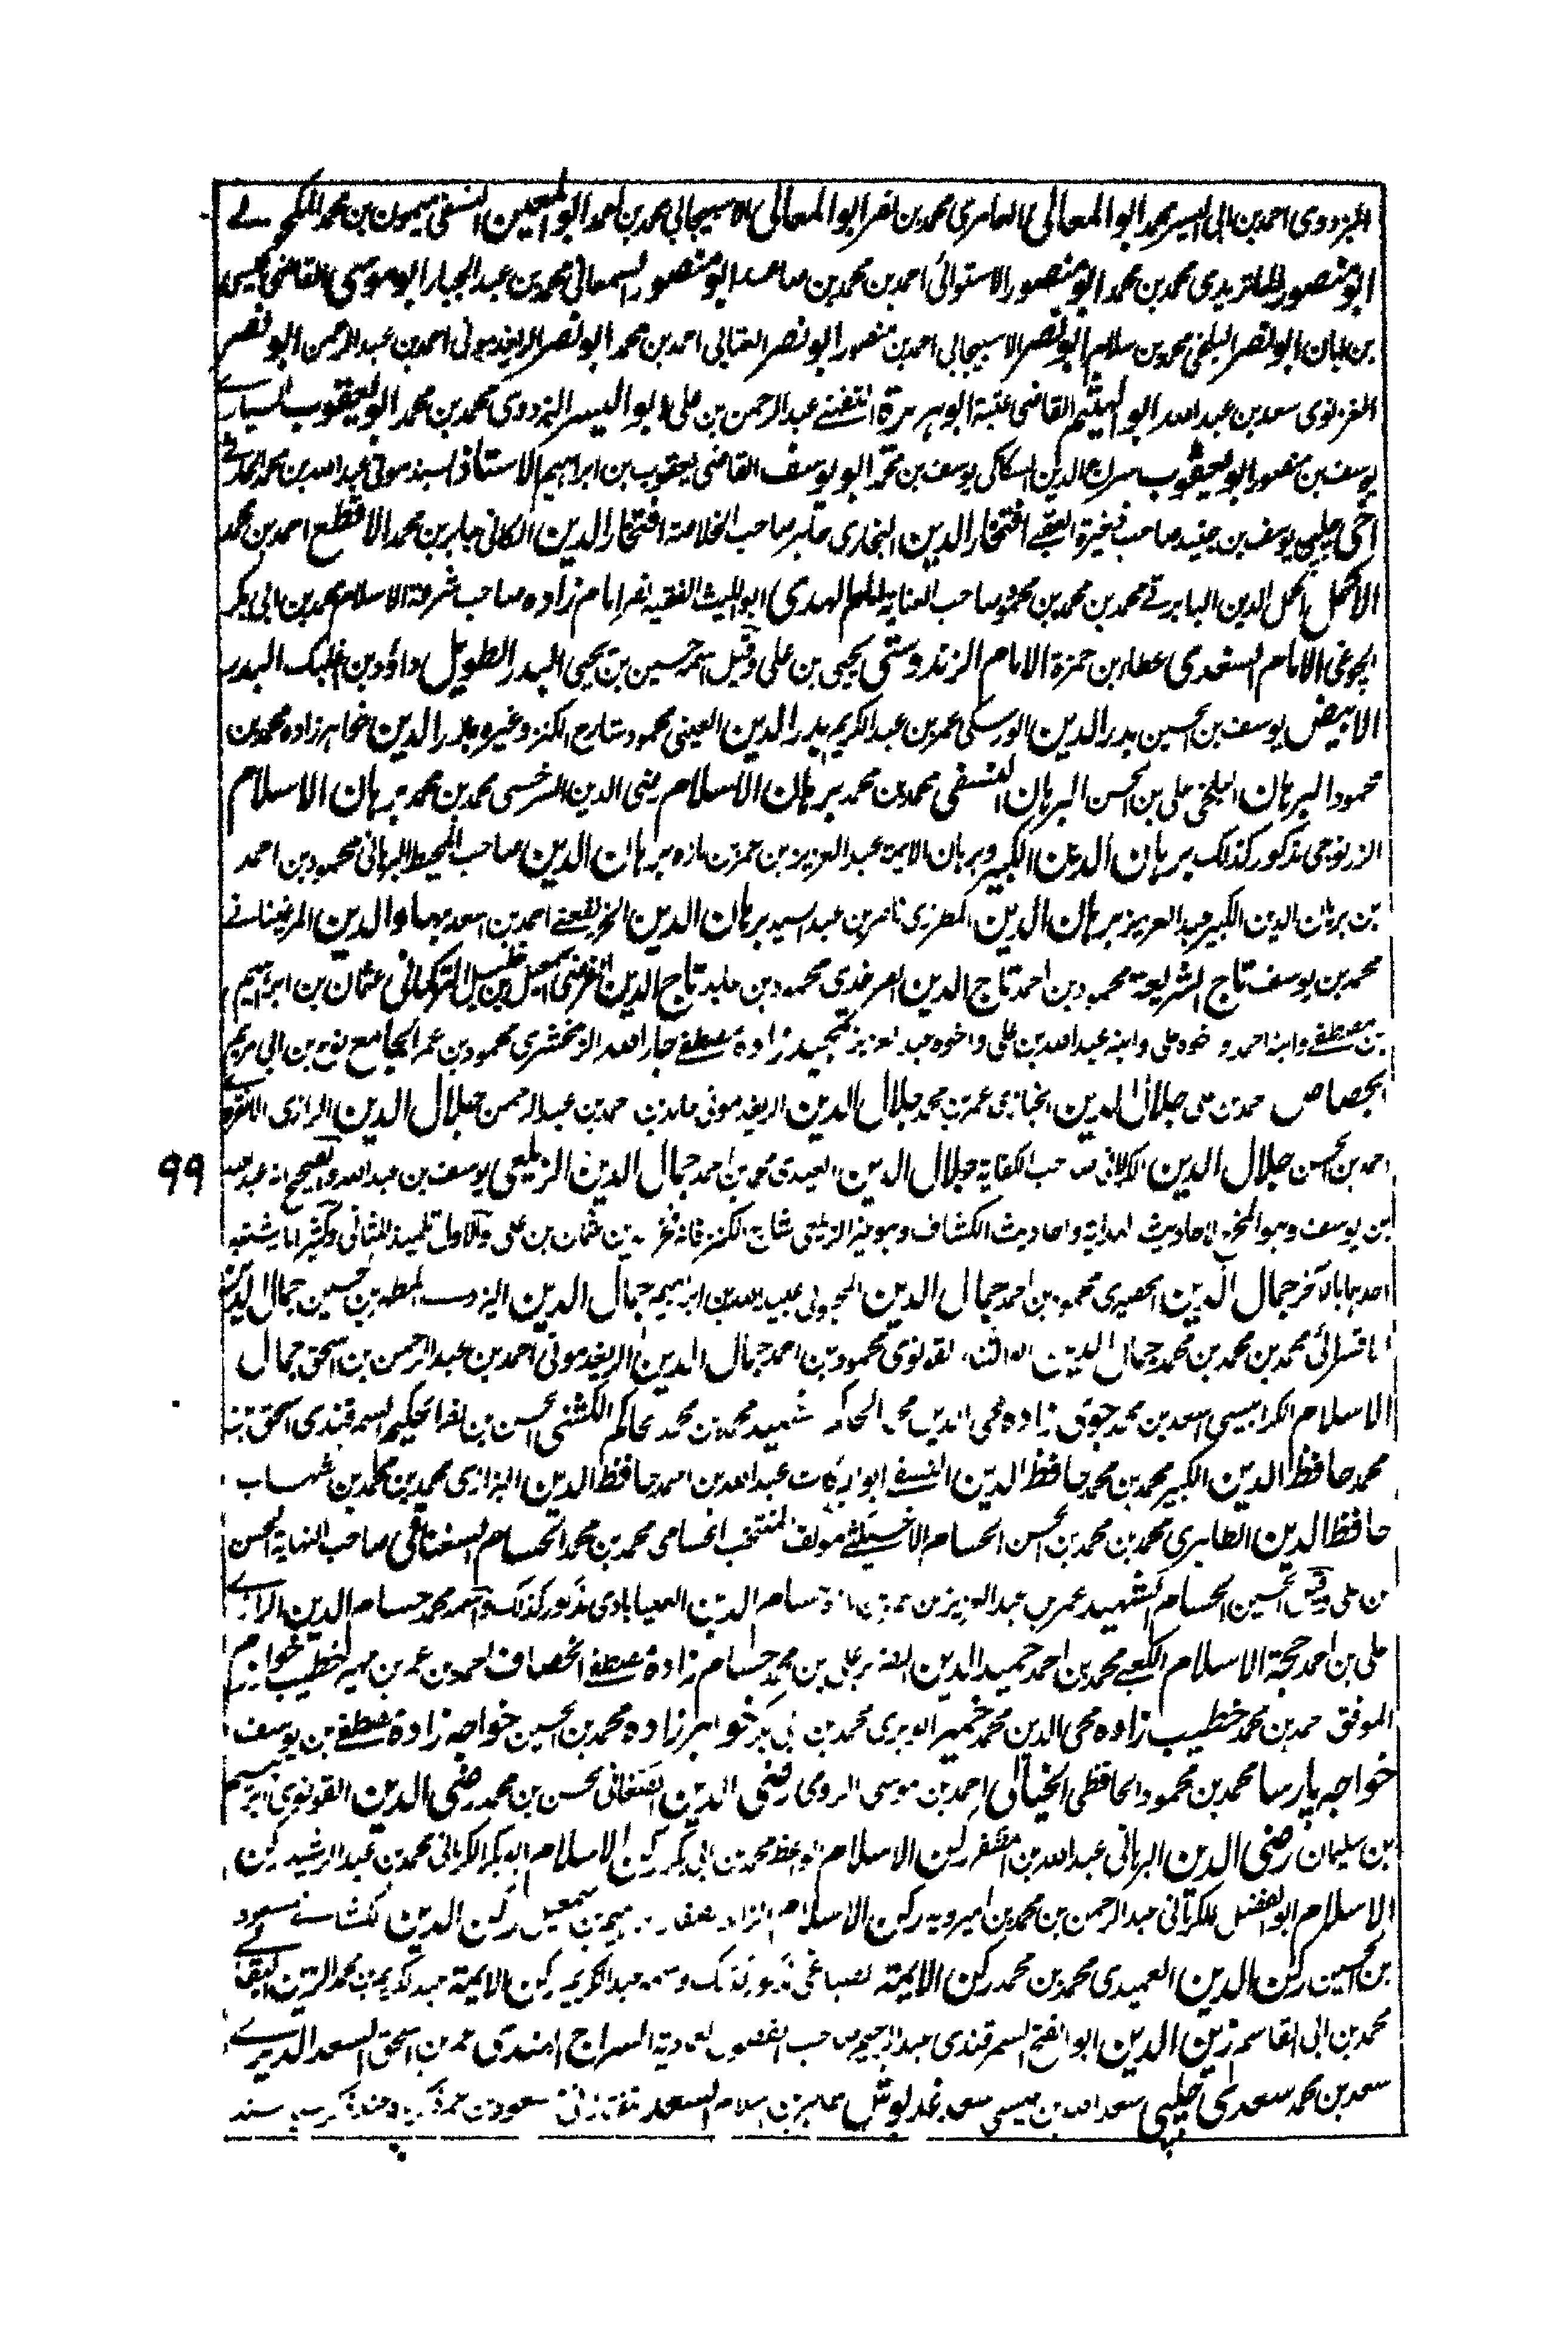 البزدوى احمد بن ابى اليسر محمد ابو المعالى العامرى محمد بن نصر ابو المعالى الاسبيجابى محمد بن احمد ابو المعين النسفى ميمون بن محمد المكحولے
ابو منصور الماتريدى محمد بن محمد ابو منصور الاستوائى احمد بن محمد بن صاعد ابو منصور السمعانى محمد بن عبد الجبار ابو موسى القاضى عيسى
بن ابان ابو النصر البلخى محمد بن سلام ابو نصر الاسبيجابى احمد بن منصور ابو نصر العتابى احمد بن محمد ابو نصر الريغدمونى احمد بن عبد الرحمن ابو نصر
الغزنوى سعد بن عبد الله ابو الهيثم القاضى عتبة ابو هريرة عبد الرحمن بن على ابو اليسر البزدوى محمد بن محمد ابو يعقوب السيارے
يوسف بن منصور ابو يعقوب سراج الدين السكاكى يوسف بن محمد ابو يوسف القاضى يعقوب بن ابراهيم الاستاذ السبذمونى عبد الله بن محمد
اخى چلپى يوسف بن جنيد صاحب ذخيرة العقبے افتخار الدين البخارى طاهر صاحب الخلاصة افتخار الدين الكاثى جابر بن محمد الاقطع احمد بن محمد
الاكمل اكمل الدين البابرتے محمد بن محمد بن محمود صاحب العناية امام الهدى ابو الليث الفقيه نصر امام زاده صاحب شرعة الاسلام محمد بن ابى بكر
الجوغى الامام السغدى عطاء بن حمزة الامام الزندوستى يحيى بن على وقيل اسمه حسين بن يحيى البدر الطويل داؤد بن اغلبك البدر
الابيض يوسف بن الحسين بدر الدين الورسكى عمر بن عبد الكريم بدر الدين العينى محمود شارح الكنز وغيره بدر الدين خواهر زاده محمد بن
محمود البرهان البلخى على بن الحسن البرهان النسفى محمد بن محمد برهان الاسلام رضى الدين السرخسى محمد بن محمد برهان الاسلام
الزرنوجى مذكور كذلك برهان الدين الكبير وبرهان الايمة عبد العزيز بن عمر بن مازه برهان الدين صاحب المحيط البرهانى محمود بن احمد
بن برهان الدين الكبير عبد العزيز برهان الدين المطرزى ناصر بن عبد السيد برهان الدين احمد بن اسعد بهاء الدين المرغينانے
محمد بن يوسف تاج الشريعة محمود بن احمد تاج الدين محمود بن عابد تاج الدين بن خليل التركمانى عثمان بن ابراهيم
بن مصطفے وابنه احمد و اخوه على وابنه عبد الله بن على واخوه عبد العزيز تمجيد زادة مصطفے جار الله الزمخشرى محمود بن عمر الجامع نوح بن ابى مريم
الجصاص احمد بن على جلال الدين الخبازى عمر بن محمد جلال الدين الريغدمونى حامد بن محمد بن عبد الرحمن جلال الدين الرازى
احمد بن الحسن جلال الدين الكرلانى صاحب الكفاية جلال الدين العيدى محمد بن احمد جمال الدين الزيلعى يوسف بن عبد الله والصحيح انه عبد الله
بن يوسف وهو المخرج لاحاديث الهداية واحاديث الكشاف وهو غير الزيلعى شارح الكنز فانه فخر الدين عثمان بن على والاول تلميذ للثانى وكثيرا ما يشتبه
احدهما بالآخر جمال الدين الحصيرى محمود بن احمد جمال الدين المحبوبى عبيد الله بن ابراهيم جمال الدين اليزدے المطهر بن حسين جمال الدين
الاقسرائى محمد بن محمد بن محمد جمال الدين ابو الثناء القونوى محمود بن احمد جمال الدين الريغدمونى احمد بن عبد الرحمن بن اسحق جمال
الاسلام الكرابيسى اسعد بن محمد جوى زاده محى الدين محمد الحاكم الشهيد محمد بن محمد الحاكم الكشنى الحسن بن نصر الحكيم السمرقندى اسحق بن
محمد حافظ الدين الكبير محمد بن محمد حافظ الدين النسفے ابو البركات عبد الله بن احمد حافظ الدين البزازى محمد بن محمد بن شهاب
حافظ الدين الطاهرى محمد بن محمد بن الحسن الحسام الاخسيكثے مؤلف المنتخب الحسامى محمد بن محمد الحسام السغناقى صاحب النهاية الحسن
بن على وقيل الحسين الحسام الشهيد عمر بن عبد العزيز بن عمر بن مازه حسام الدين العليابادى مذكور كذلك واسمه محمد حسام الدين الرازے
على بن احمد حجة الاسلام الكعبے محمد بن احمد حميد الدين الضرير على بن محمد حسام زادة مصطفے الخصاف احمد بن عمر بن مهير خطيب خوارزم
الموفق احمد بن محمد خطيب زاده محى الدين محمد خمير الوبرى محمد بن ابى بكر خواهر زاده محمد بن الحسين خواجه زادة مصطفے بن يوسف
خواجه پارسا محمد بن محمود الحافظى الخيالى احمد بن موسى الرومى رضى الدين الصغانى الحسن بن محمد رضى الدين القونوى ابراهيم
بن سليمان رضى الدين البرهانى عبد الله بن المظفر ركن الاسلام الواعظ محمد بن ابى بكر ركن الاسلام ابو بكر الكرمانى محمد بن عبد الرشيد ركن
الاسلام ابو الفضل الكرمانى عبد الرحمن بن محمد بن اميرويه ركن الاسلام الزاهد الصفار ابراهيم بن اسمعيل ركن الدين الكشانے مسعود
بن الحسين ركن الدين العميدى محمد بن محمد ركن الايمة الصباغى مذكور كذلك واسمه عبد الكريم ركن الايمة عبد الكريم بن محمد الزين البقالے
محمد بن ابى القاسم زين الدين ابو الفتح السمرقندى عبد الرحيم صاحب الفصول العمادية السراج الهندى عمر بن اسحق السعد الديرے
سعد بن محمد سعدى چلپى سعد الله بن عيسى سعد غديوش السعد التفتازانى مسعود بن عمر